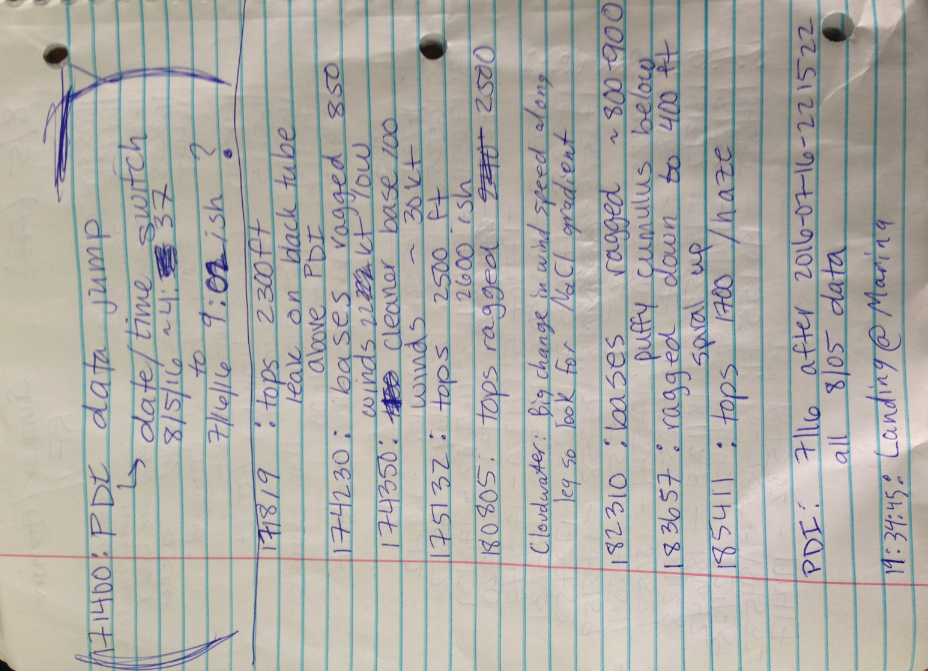 171400: PDI data jump
↳ date/time switch
8/5/16 ~4:37
to
7/16/16 9:02ish ?
171819 : tops 2300ft
leak on black tube
above PDI
174230: bases ragged 850
winds 22 kt / low
174350: cleaner base 700
winds ~ 30kt
175132: tops 2500 ft
2600 ish
180805: tops ragged 2500
Cloudwater: Big change in wind speed along
leg so look for NaCl gradient
182310 : bases ragged ~800-900
puffy cumulus below
183657 : ragged down to 400 ft
spiral up
185411 : tops 1700 / haze
PDI: 7/16 after 2016-07-16-221522
all 8/05 data
19:34:45: Landing @ Marina